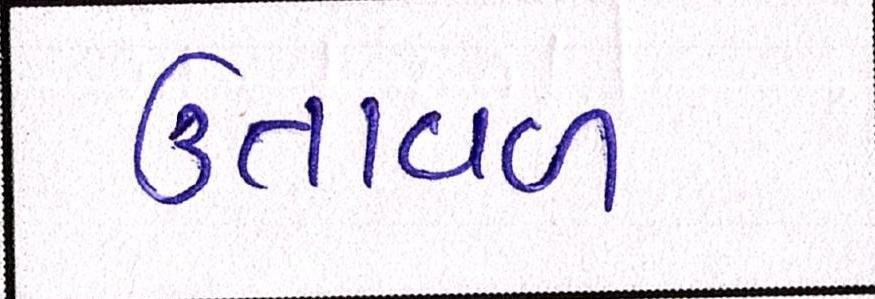 ઉતાવળ